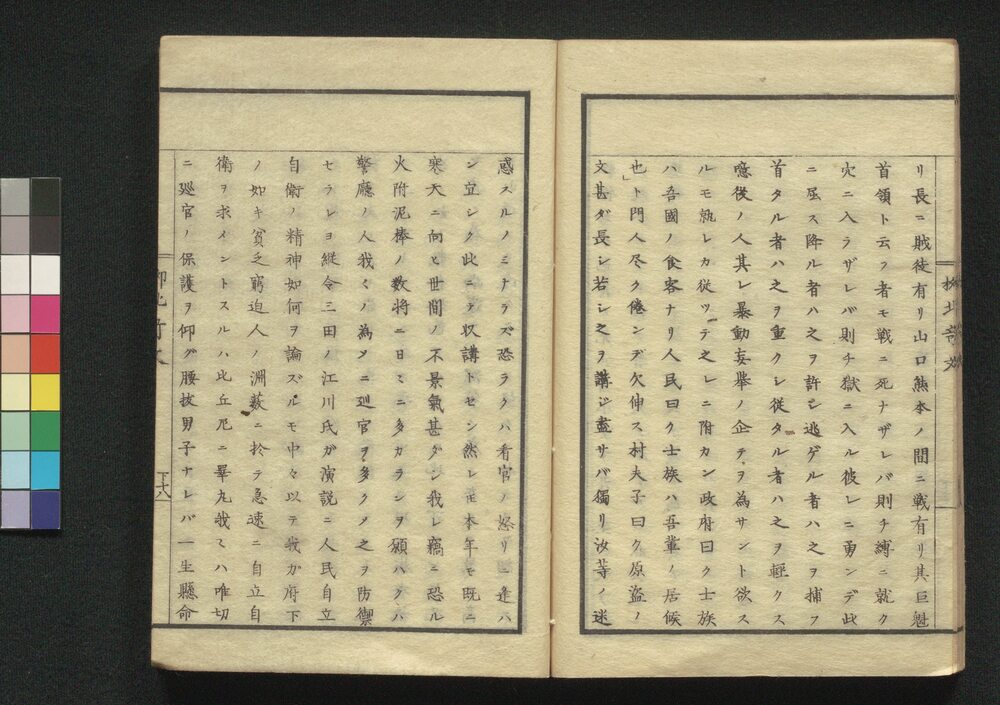 リ長ニ賊徒有リ山口熊本ノ間ニ戦有リ其巨魁
首領ト云フ者モ戦ニ死ナザレバ則チ縛ニ就ク
穴ニ入ラザレバ則チ獄ニ入ル彼レニ勇ンデ此
ニ屈ス降ル者ハ之ヲ許シ逃ゲル者ハ之ヲ捕フ
首タル者ハ之ヲ重クシ従タル者ハ之ヲ軽クス
噫後ノ人其レ暴動妄挙ノ企テヲ為サント欲ス
ルモ孰レカ従ツテ之レニ附カン政府曰ク士族
ハ吾國ノ食客ナリ人民曰ク士族ハ吾輩ノ居候
也ト門人尽ク倦ンデ欠伸ス村夫子曰ク原盗ノ
文甚ダ長シ若シ之ヲ講ジ盡サバ獨リ汝等ノ迷
惑スルノミナラズ恐ラクハ看官ノ怒リニ逢ハ
ン宜シク此ニテ収講トセン然レモ本年モ既ニ
寒天ニ向ヒ世間ノ不景氣甚ダシ我レ竊ニ恐ル
火附泥棒ノ数将ニ日ミニ多カランヲ願ハクハ
警廳ノ人我々ノ為メニ廵官ヲ多クメ之ヲ防禦
セラレヨ縦令三田ノ江川氏ガ演説ニ人民自立
自衛ノ精神如何ヲ論ズルモ中々以テ我ガ府下
ノ如キ貧乏窮迫人ノ淵藪ニ於テ急速ニ自立自
衛ヲ求メントスルハ比丘尼ニ睾丸我ミハ唯切
ニ廵官ノ保護ヲ仰グ腰抜男子ナレバ一生懸命
十八